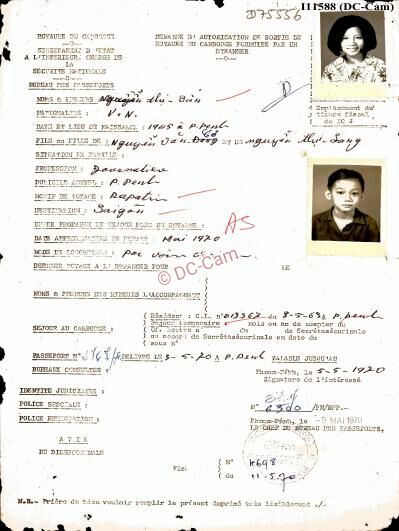 D75556
I11588 (DC-Cam)
ROYAUME DU CAMBODGE
SECRETARIAT D'ETAT
A L'INTERIEUR, CHARGE DE
LA
SECURITE NATIONALE
BUREAU DES PASSEPORTS
DEMANDE D'AUTORISATION DE SORTIE DU
ROYAUME DU CAMBODGE FORMULEE PAR UN
ETRANGER
Emplacement du
timbre fiscal
NOMS & PRENOMS Nguyễn thị
NATIONALITE : V.N.
DATE ET LIEU DE NAISSANCE : 1945 à P. penh
FILS ou FILLE de : Nguyễn Văn ET DE Nguyễn thị
SITUATION DE FAMILLE :
PROFESSION : Journalière
DOMICILE ACTUEL : P. Penh
MOTIF DE VOYAGE : Rapatrié
DESTINATION : Saigon
DUREE PROBABLE DE SEJOUR HORS DU ROYAUME :
AS
DATE APPROXIMATIVE DE DEPART : Mai 1970
MODE DE LOCOMOTION : par voie
© DC-Cam
DERNIER VOYAGE A L'ETRANGER POUR LE
NOMS & PRENOMS DES MINEURS L'ACCOMPAGNANT
SEJOUR AU CAMBODGE :
Résident : C.I. N° 013367 du 8-5-69 à P. penh
Séjour temporaire mois ou an de compter du
Cf. lettre N° du
sous N°
PASSEPORT N° DELIVRE 9-5-70 A P. penh VALABLE JUSQU'AU
BUREAUX CONSULTES :
Phnom-Penh, le 5-5-1970
Signature de l'intéressé
IDENTITE JUDICIAIRE :
POLICE SPECIALE :
POLICE
N° 6500 /PN/BPP.-
Phnom-Penh, le -9 MAI 1970
LE CHEF DU BUREAU DES PASSEPORTS,
A V I S
Visa
N° K698
du 11.5.70
N.B.- Prière de bien vouloir remplir le présent imprimé très lisiblement ./-